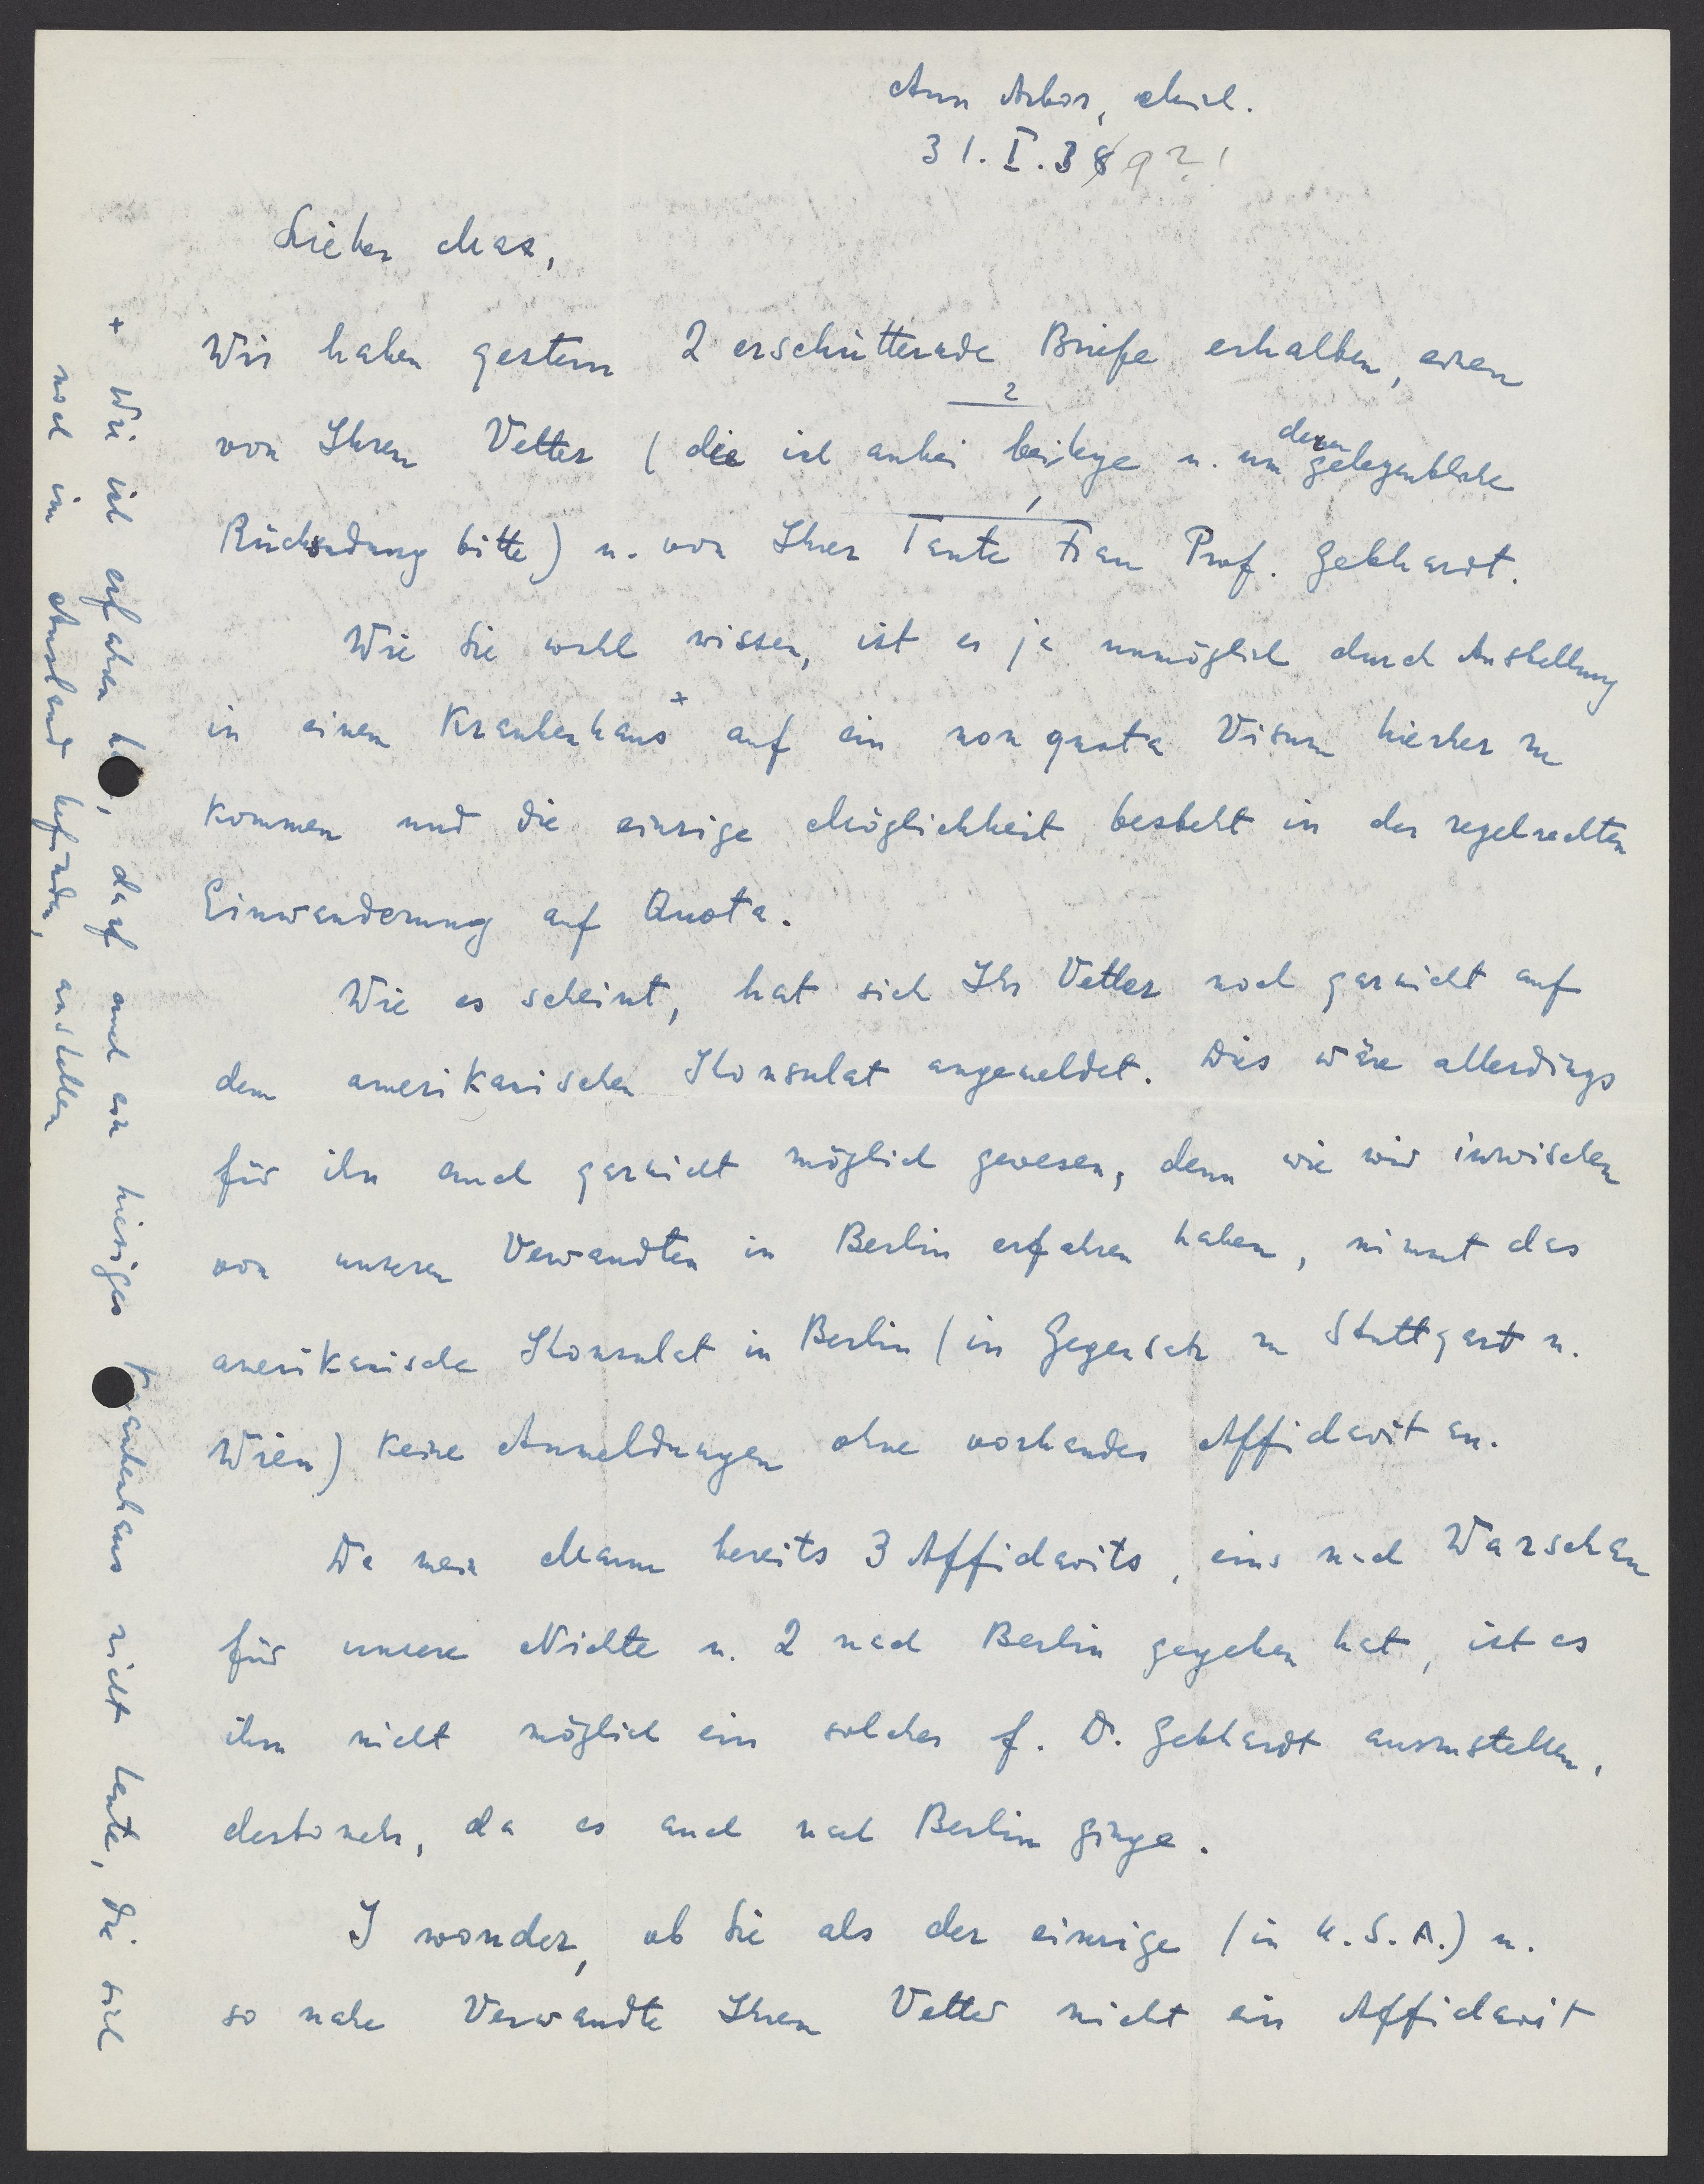 Ann Arbor, Mich.
31.I.38 9?!
Lieber Max,
Wir haben gestern 2 erschütternde Briefe erhalten, einen
2
von Ihrem Vetter (die ich anbei beilege u. um deren gelegentliche
Rücksendung bitte) u. von Ihrer Tante Frau Prof. Gebhardt.
Wie Sie wohl wissen, ist es ja unmöglich durch Anstellung
in einem Krankenhaus + auf ein non quota Visum hierher zu
kommen und die einzige Möglichkeit besteht in der regelrechten
Einwanderung auf Quota.
Wie es scheint, hat sich Ihr Vetter noch garnicht auf
dem amerikanischen Konsulat angemeldet. Dies wäre allerdings
für ihn auch garnicht möglich gewesen, denn wie wir inzwischen
von unseren Verwandten in Berlin erfahren haben, nimmt das
amerikanische Konsulat in Berlin (im Gegensatz zu Stuttgart u.
Wien) keine Anmeldungen ohne vorhandes Affidavit an.
Da mein Mann bereits 3 Affidavits, eins nach Warschau
für unsere Nichte u. 2 nach Berlin gegeben hat, ist es
ihm nicht möglich ein solches f. D. Gebhardt auszustellen,
destomehr, da es auch nach Berlin ginge.
I wonder, ob Sie als der einzige (in U.S.A.) u.
so nahe Verwandte Ihrem Vetter nicht ein Affidavit
+ Wie ich erfahren, darf auch ein hiesiges Krankenhaus nicht Leute, die sich
noch im Ausland befinden, anstellen